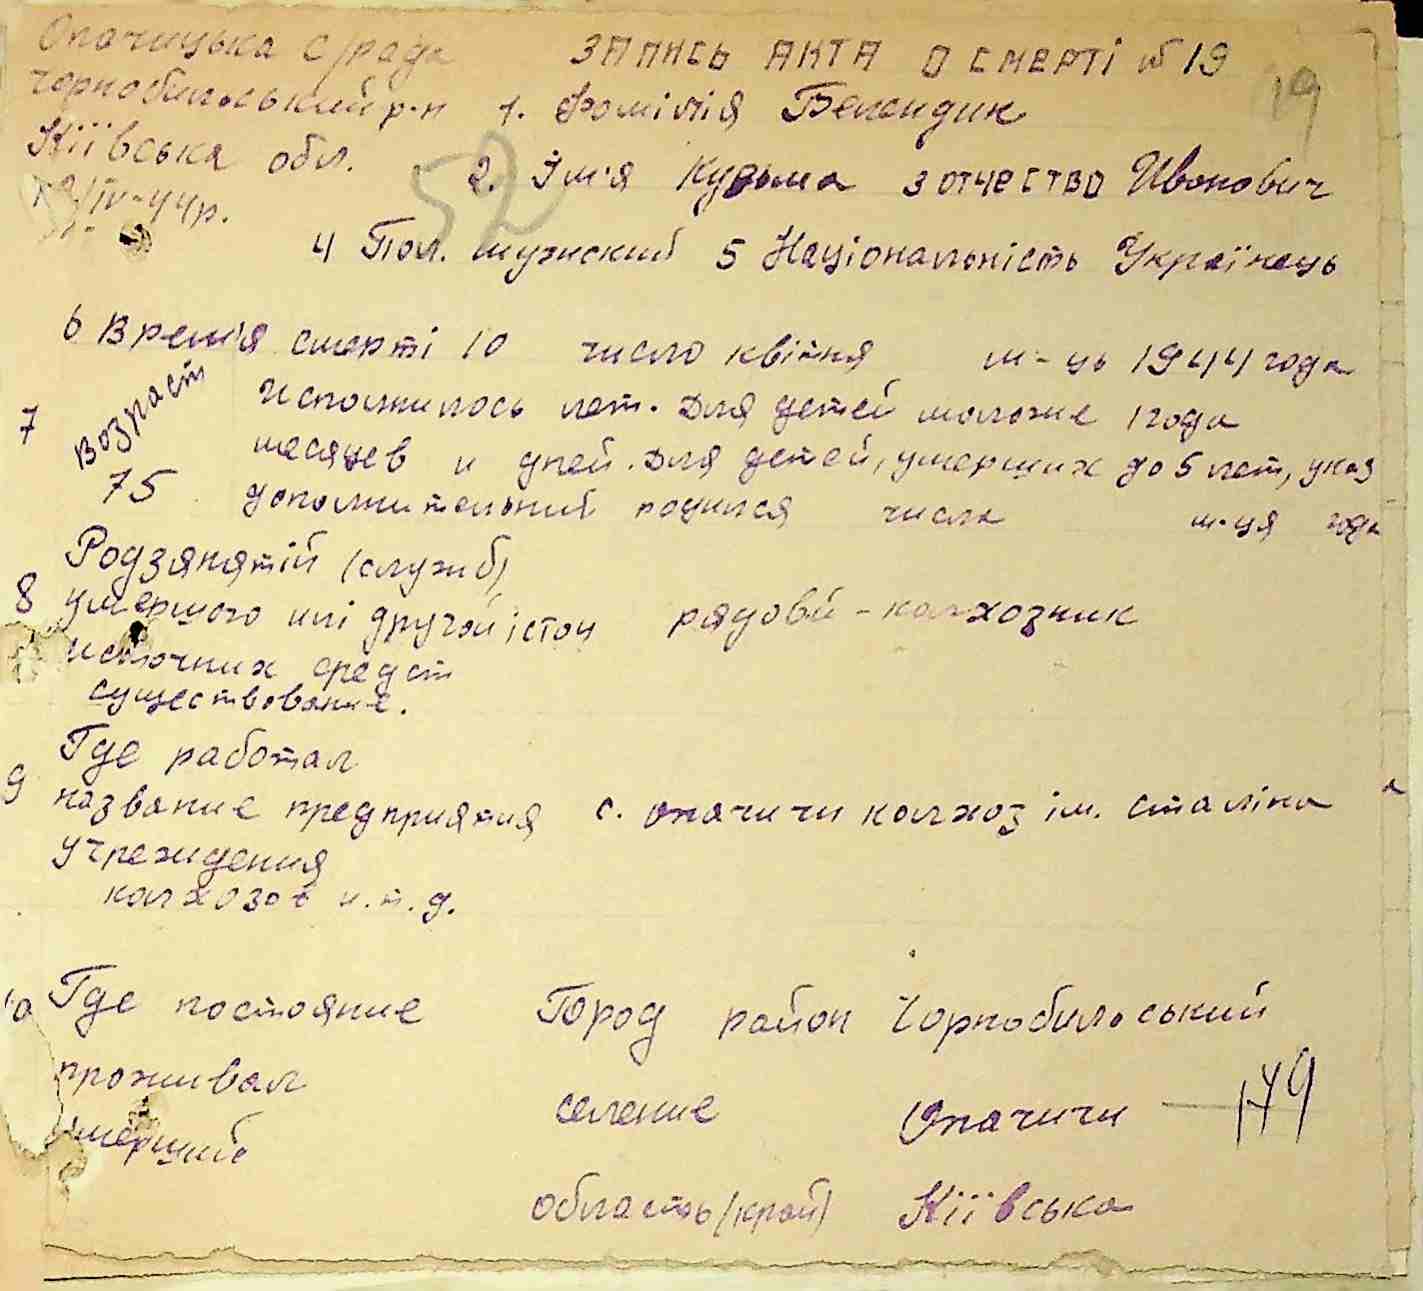 Опачицька с/рада
ЗАПИСЬ АКТА О СМЕРТІ № 19
19
Чорнобильський р-н
1. Фомілія Белендик
Київська обл.
52
2. Ім'я Кузьма 3 отчество Ивонович
/IV-44р.
4 Пол. мужский 5 Національність Українець
6 Врем'я смерті 10 число квітня м-ць 1944 года
7 Возраст 75
Исполнилось лет. Для детей моложе 1 года
месяцев и дней. Для детей, умерших до 5 лет, указ
дополнительний родился числа м-ця года
Родзянятій (служб)
8 умершого илі другой істоч
рядовй - колхозник
источник средст
существование.
Где работал
9 название предприятия
с. Опачичи колхоз ім. Сталіна
учреждения
колхозов и.т.д.
10 Где постояние
Город район Чорнобильський
проживал
умерший
селение Опачичи
179
область (край) Київська